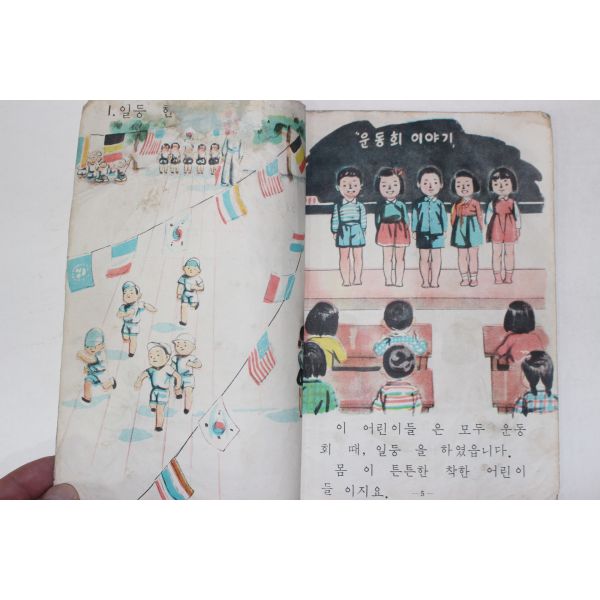 1. 일등 한
“운동회 이야기”
이 어린이들 은 모두 운동
회 때, 일등 을 하였읍니다.
몸 이 튼튼한 착한 어린이
들 이지요.
—5—